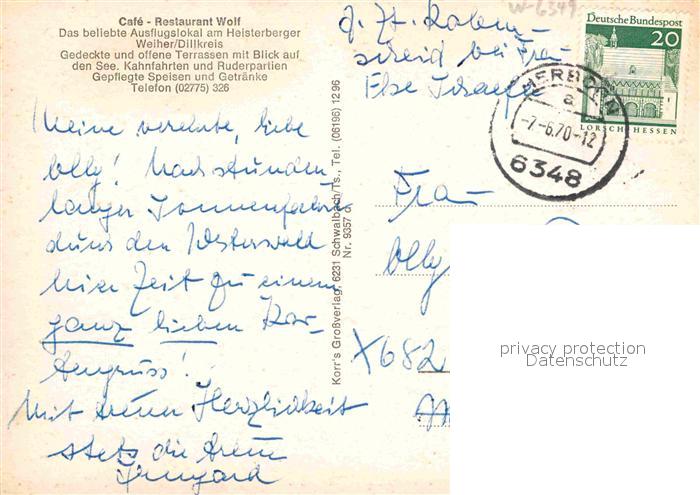 Café - Restaurant Wolf
Das beliebte Ausflugslokal am Heisterberger
Weiher/Dillkreis
Gedeckte und offene Terrassen mit Blick auf
den See. Kahnfahrten und Ruderpartien
Gepflegte Speisen und Getränke
Telefon (02775) 326
z. Zt. Raben-
scheid bei Frau
Else
W-6349
Deutsche Bundespost
20
LORSCH/HESSEN
HERBORN
a
-7.-6.70-12
6348
Meine verehrte, liebe
Olly! Nach stunden
langer Sonnenfahrt
durch den Westerwald
hier Zeit zu einem
ganz lieben Kar-
tengruss!
Mit treuer Herzlichkeit
stets die treue
Irmgard
Korr's Großverlag, 6231 Schwalbach/Ts., Tel. (06196) 12 96
Nr. 9357 d
Frau
Olly
X682
privacy protection
Datenschutz